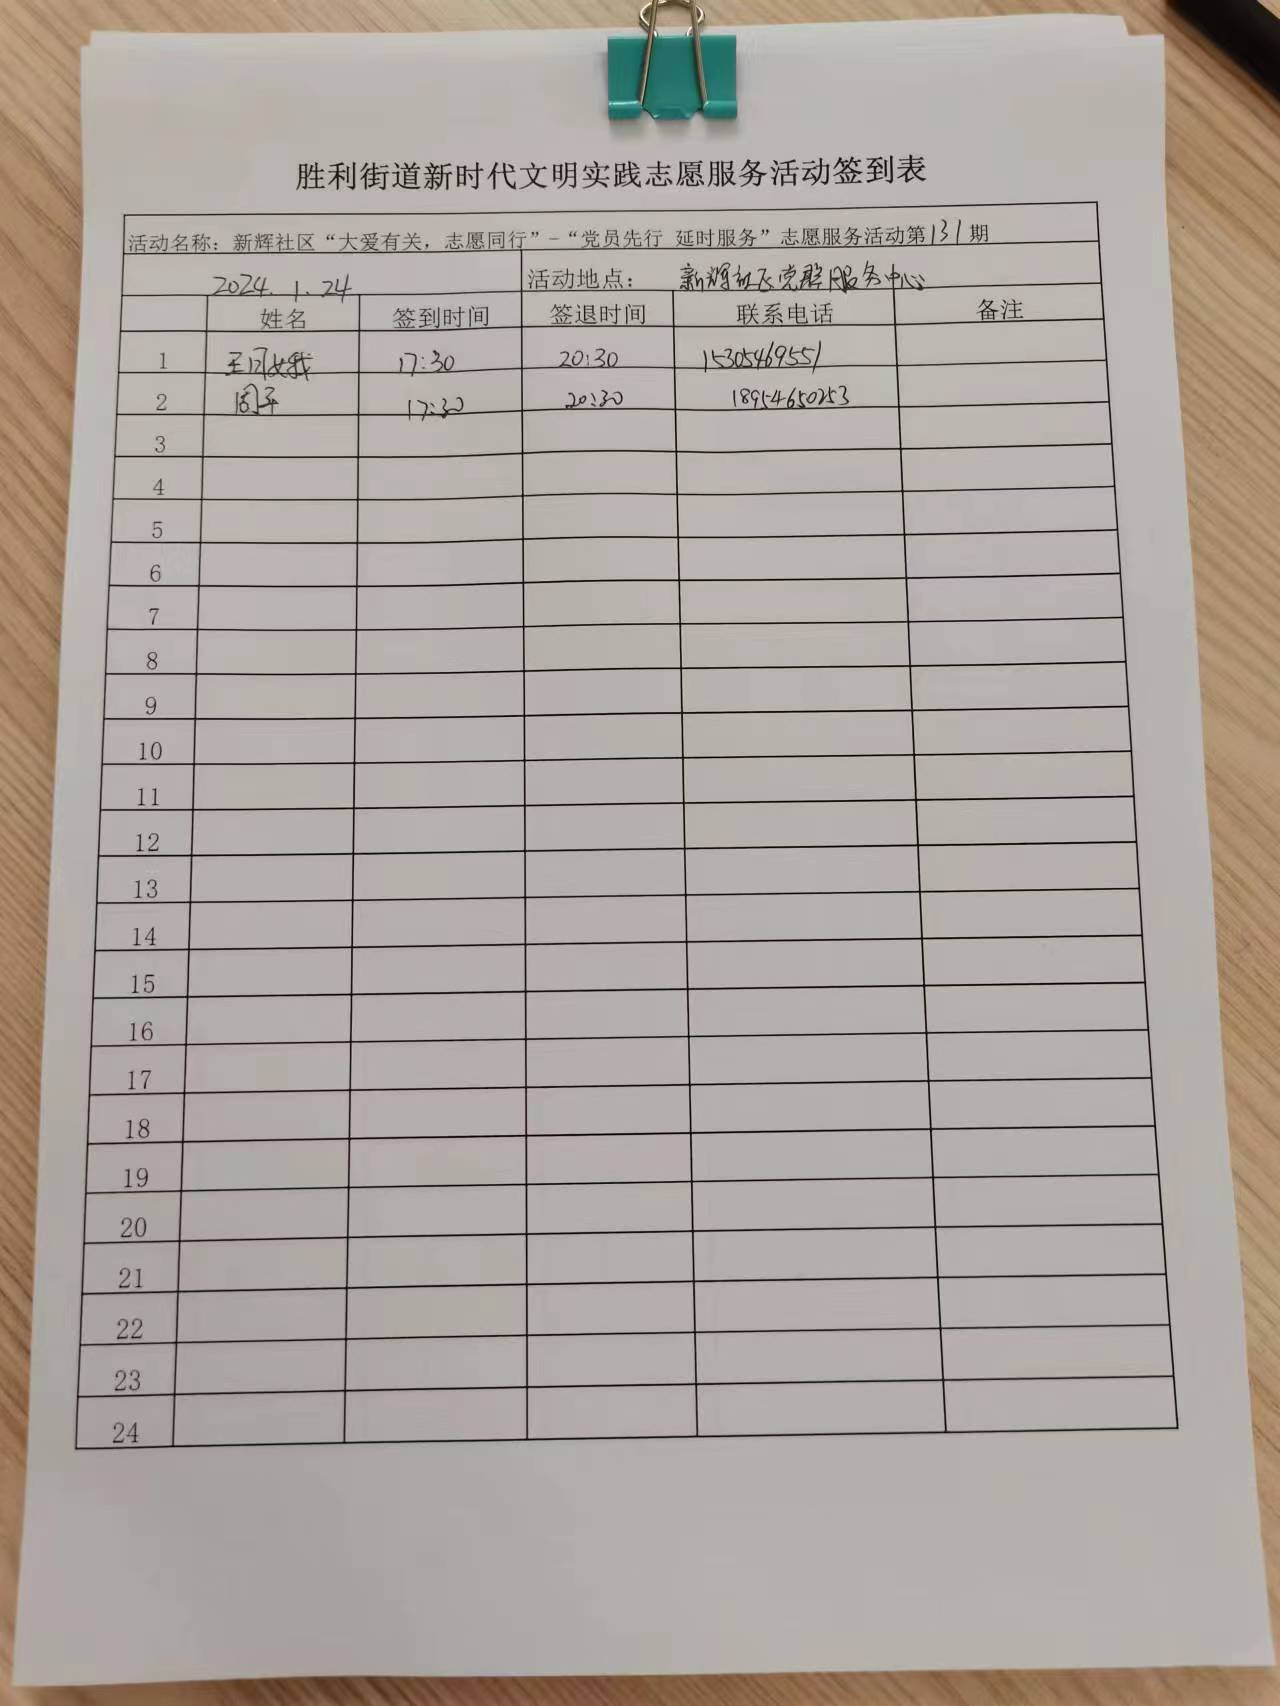 胜利街道新时代文明实践志愿服务活动签到表
活动名称：新辉社区“大爱有关，志愿同行”-“党员先行 延时服务”志愿服务活动第131期
2024.1.24 活动地点： 新辉社区党群服务中心
姓名 签到时间 签退时间 联系电话 备注
1 17:30 20:30 15305469551
2 周平 17:30 20:30 18954650253
3
4
5
6
7
8
9
10
11
12
13
14
15
16
17
18
19
20
21
22
23
24